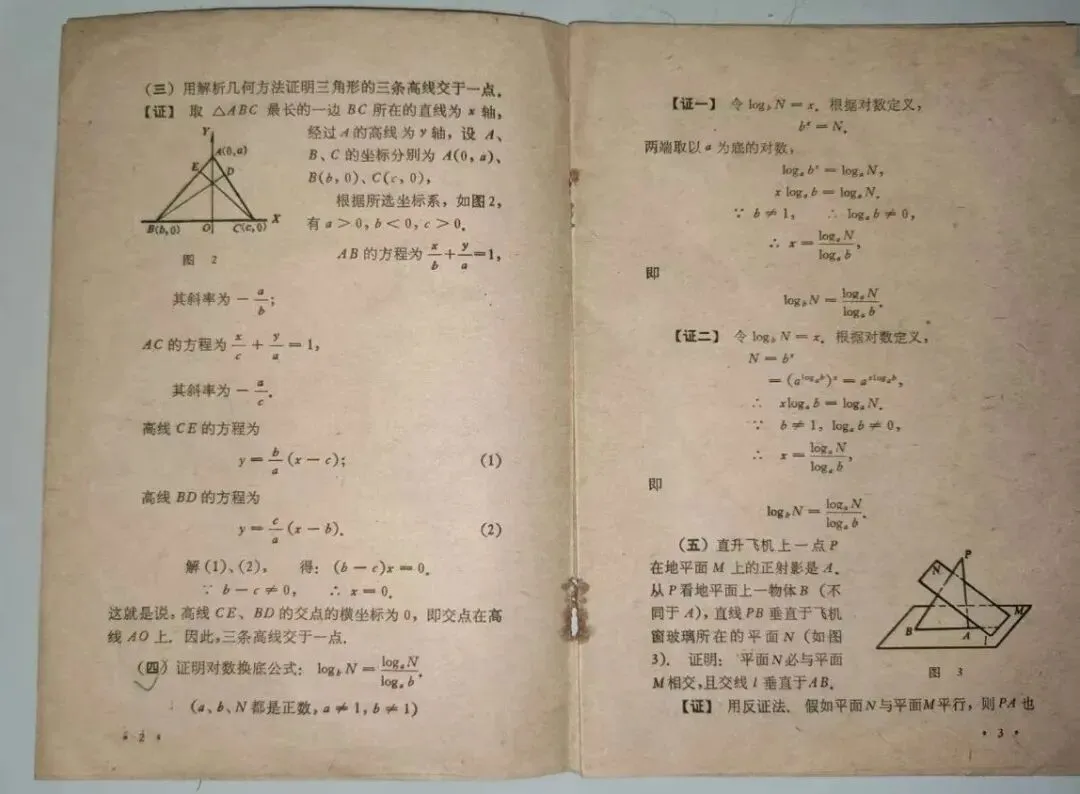 (三) 用解析几何方法证明三角形的三条高线交于一点.
【证】 取 △ABC 最长的一边 BC 所在的直线为 x 轴,
经过 A 的高线为 y 轴, 设 A、
B、C 的坐标分别为 A(0, a)、
B(b, 0)、C(c, 0),
根据所选坐标系, 如图2,
有 a > 0, b < 0, c > 0.
Y
A(0,a)
E
D
B(b,0)
O
C(c,0)
X
图 2
AB 的方程为 x/b + y/a = 1,
其斜率为 - a/b;
AC 的方程为 x/c + y/a = 1,
其斜率为 - a/c.
高线 CE 的方程为
y = b/a (x - c); (1)
高线 BD 的方程为
y = c/a (x - b). (2)
解 (1)、(2), 得: (b - c)x = 0.
∵ b - c ≠ 0, ∴ x = 0.
这就是说, 高线 CE、BD 的交点的横坐标为 0, 即交点在高
线 AO 上. 因此, 三条高线交于一点.
(四) 证明对数换底公式: log_b N = log_a N / log_a b.
(a、b、N 都是正数, a ≠ 1, b ≠ 1)
• 2 •
【证一】 令 log_b N = x. 根据对数定义,
b^x = N.
两端取以 a 为底的对数,
log_a b^x = log_a N,
x log_a b = log_a N.
∵ b ≠ 1, ∴ log_a b ≠ 0,
∴ x = log_a N / log_a b,
即
log_b N = log_a N / log_a b.
【证二】 令 log_b N = x. 根据对数定义,
N = b^x
= (a^{log_a b})^x = a^{x log_a b},
∴ x log_a b = log_a N.
∵ b ≠ 1, log_a b ≠ 0,
∴ x = log_a N / log_a b,
即
log_b N = log_a N / log_a b.
(五) 直升飞机上一点 P
在地平面 M 上的正射影是 A.
从 P 看地平面上一物体 B (不
同于 A), 直线 PB 垂直于飞机
窗玻璃所在的平面 N (如图
3). 证明: 平面 N 必与平面
M 相交, 且交线 l 垂直于 AB.
P
N
M
B
A
l
图 3
【证】 用反证法. 假如平面 N 与平面 M 平行, 则 PA 也
• 3 •